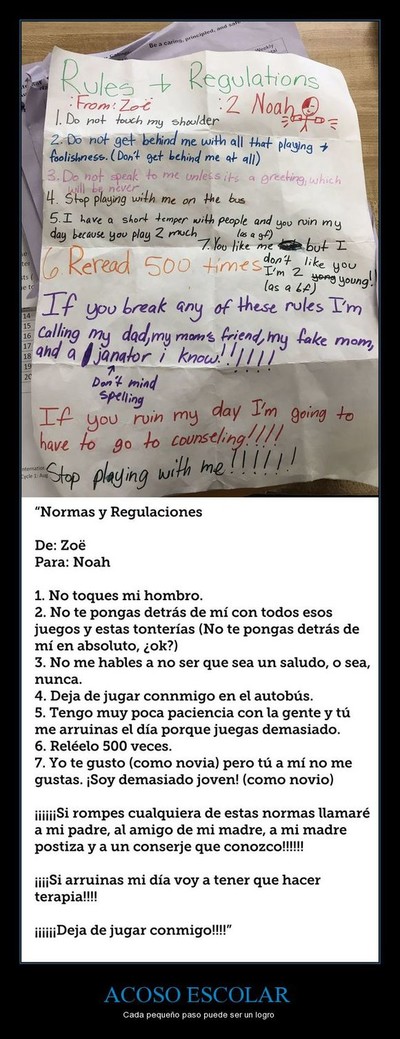 Be a caring, principled, and safe
Weekly
Rules + Regulations
:From: Zoë :2 Noah
1. Do not touch my shoulder
2. Do not get behind me with all that playing +
foolishness. (Don't get behind me at all)
3. Do not speak to me unless its a greeting, which
will be never
4. Stop playing with me on the bus
5. I have a short temper with people and you ruin my
day because you play 2 much
(as a gf)
7. You like me but I
don't like you
I'm 2 young!
(as a bf)
6 Reread 500 times
If you break any of these rules I'm
calling my dad, my mom's friend, my fake mom,
and a janator i know!!!!!!
Don't mind
spelling
If you ruin my day I'm going to
have to go to counseling!!!!
Stop playing with me!!!!!!
14
15
16
17
18
19
20
“Normas y Regulaciones
De: Zoë
Para: Noah
1. No toques mi hombro.
2. No te pongas detrás de mí con todos esos
juegos y estas tonterías (No te pongas detrás de
mí en absoluto, ¿ok?)
3. No me hables a no ser que sea un saludo, o sea,
nunca.
4. Deja de jugar connmigo en el autobús.
5. Tengo muy poca paciencia con la gente y tú
me arruinas el día porque juegas demasiado.
6. Reléelo 500 veces.
7. Yo te gusto (como novia) pero tú a mí no me
gustas. ¡Soy demasiado joven! (como novio)
¡¡¡¡¡¡Si rompes cualquiera de estas normas llamaré
a mi padre, al amigo de mi madre, a mi madre
postiza y a un conserje que conozco!!!!!!
¡¡¡¡Si arruinas mi día voy a tener que hacer
terapia!!!!
¡¡¡¡¡¡Deja de jugar conmigo!!!!”
ACOSO ESCOLAR
Cada pequeño paso puede ser un logro